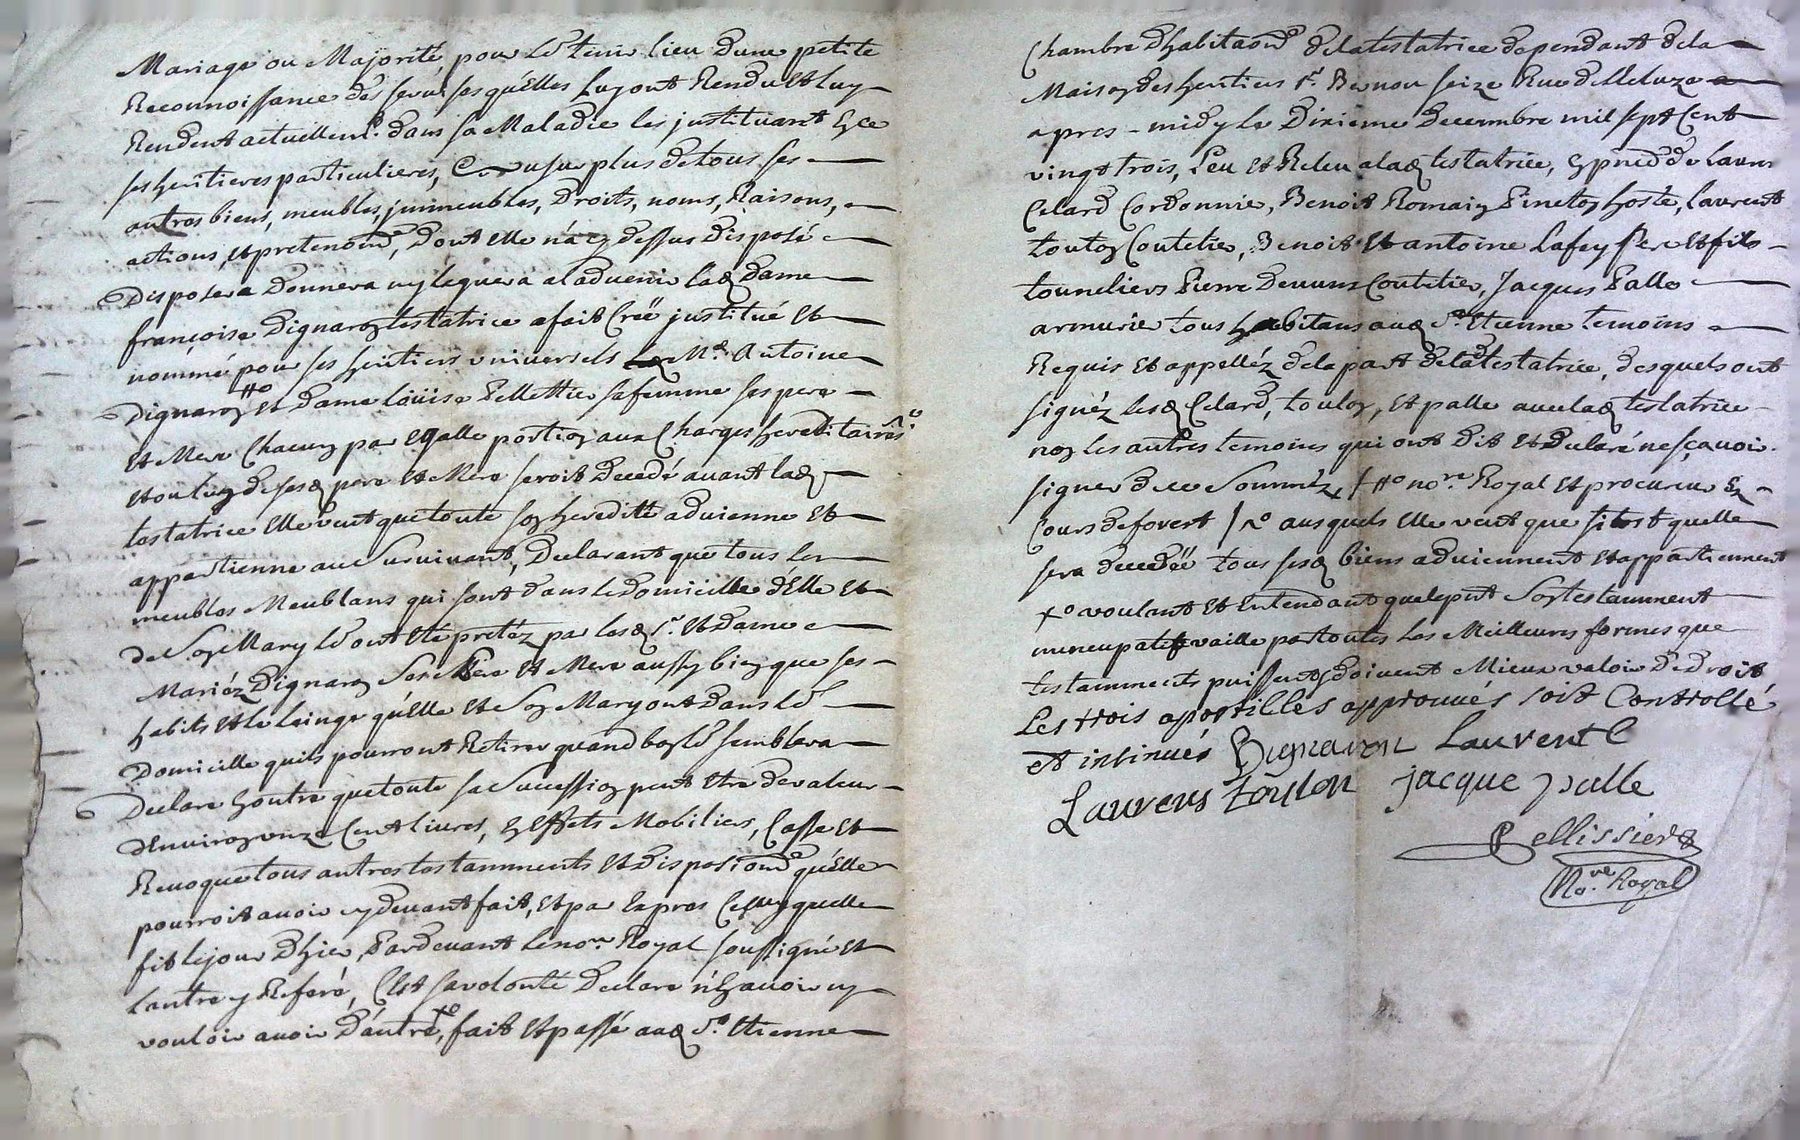 Mariage ou Majorité, pour Leur tenir lieu d'une petite
Reconnoissance des services qu'Elles Luy ont Rendu et Luy
Rendent actuellemt. dans sa Maladie les instituant En ce
ses heritieres particulieres, Et au surplus de tous ses
autres biens, meubles, immeubles, Droits, noms, Raisons,
actions, et pretentions, dont elle n'a cy dessus disposé
Disposera Donnera ny leguera a l'advenir lad dame
françoise Dignaron testatrice a fait Créé institué et
nommé pour ses heritiers universels Mr. Antoine
Dignaron ffo et Dame Loüise Pellettier sa femme ses pere
et Mere Chacun par Egalle portion aux Charges hereditaires ro
et ou lun de sesd pere et Mere seroit decedé avant lad
testatrice Elle veut que toute son heredité advienne et
appartienne au Survivant, Declarant que tous les
meubles Meublans qui sont dans le Domicille d'Elle et
de Son Mary Leur ont eté pretéz par lesd Sr. et Dame
Mariéz Dignaron Ses Pere et Mere aussy bien que ses
habits et le Linge qu'Elle et Son Mary ont dans led
Domicille quils pourront Retirer quand bon leur semblera
Declare En outre que toute sa Succession peut etre de valeur
d'Environ unze Cent livres, En Effets Mobiliers, Casse et
Revoque tous autres testamments et Dispositions qu'Elle
pourroit avoir cy devant fait, et par Expres Celluy quelle
fit le jour d'hier Pardevant le nore. Royal soussigné et
lautre y Referé, C'est sa volonté Declare n'En avoir ny
vouloir avoir d'autre xo, fait et passé aud St. Etienne
Chambre d'habitation de la testatrice dependant de la
Maison des heritiers Sr. Bernou seize Rue de
apres-midy le Dixieme Decembre mil sept Cent
vingt trois, Leu et Releu a lad testatrice, En pnce de Laurens
Celard Cordonnier, Benoit Romain Pineton hoste, Laurent
toulon Coutelier, Benoit et antoine Lafay Pere et fils
tonneliers Pierre Coutelier, Jacques Palle
armurier tous habitans aud St. Etienne temoins
Requis et appelléz de la part de lad testatrice, desquels ont
signéz lesd Celard, toulon, et palle avec lad testatrice
non les autres temoins qui ont dit et Declaré ne sçavoir
signer de ce Somméz / ffo nore. Royal et procureur Ez
Cours de forest / ro ausquels elle veut que sitost quelle
sera decedée tous sesd biens adviennent et appartiennent
xo voulant et Entendant que le pnt Son testamment
nuncupatif vaille par toutes les Meilleures formes que
testamments puissent & doivent Mieux valoir de droit
Les trois apostilles approuvés soit Controllé
et insinués Dignaron Laurent C
Laurens toulon jacque palle
Pellissier
No.re Royal